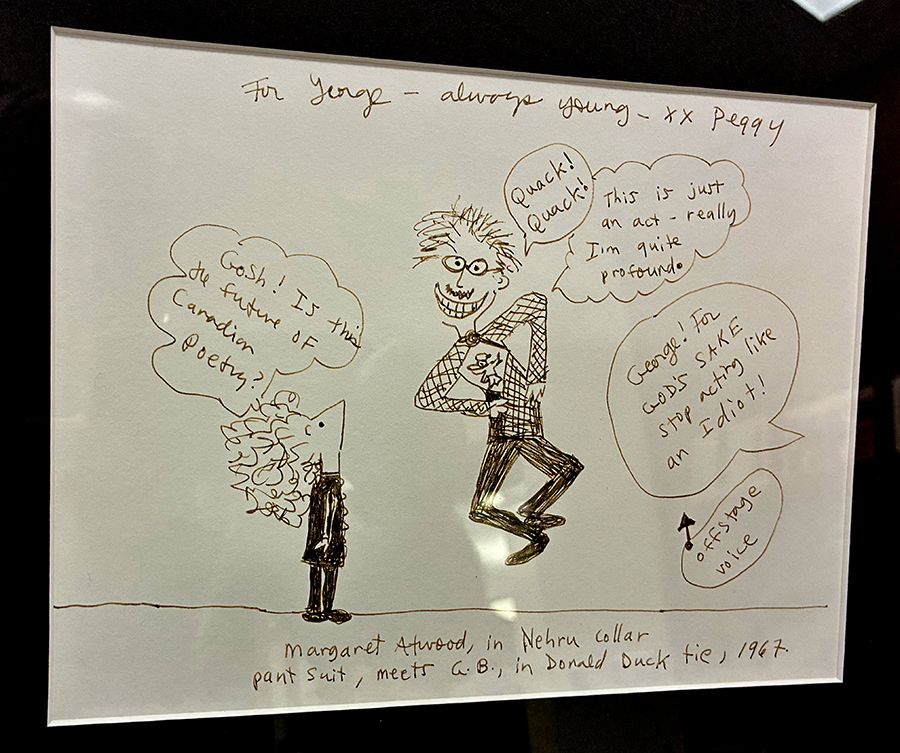 For George - always young - xx Peggy
Quack!
Quack!
This is just
an act - really
I'm quite
profound.
Gosh! Is this
the future of
Canadian
Poetry?
George! For
GOD'S SAKE
stop acting like
an Idiot!
offstage
voice
Margaret Atwood, in Nehru Collar
pant suit, meets G.B., in Donald Duck tie, 1967.